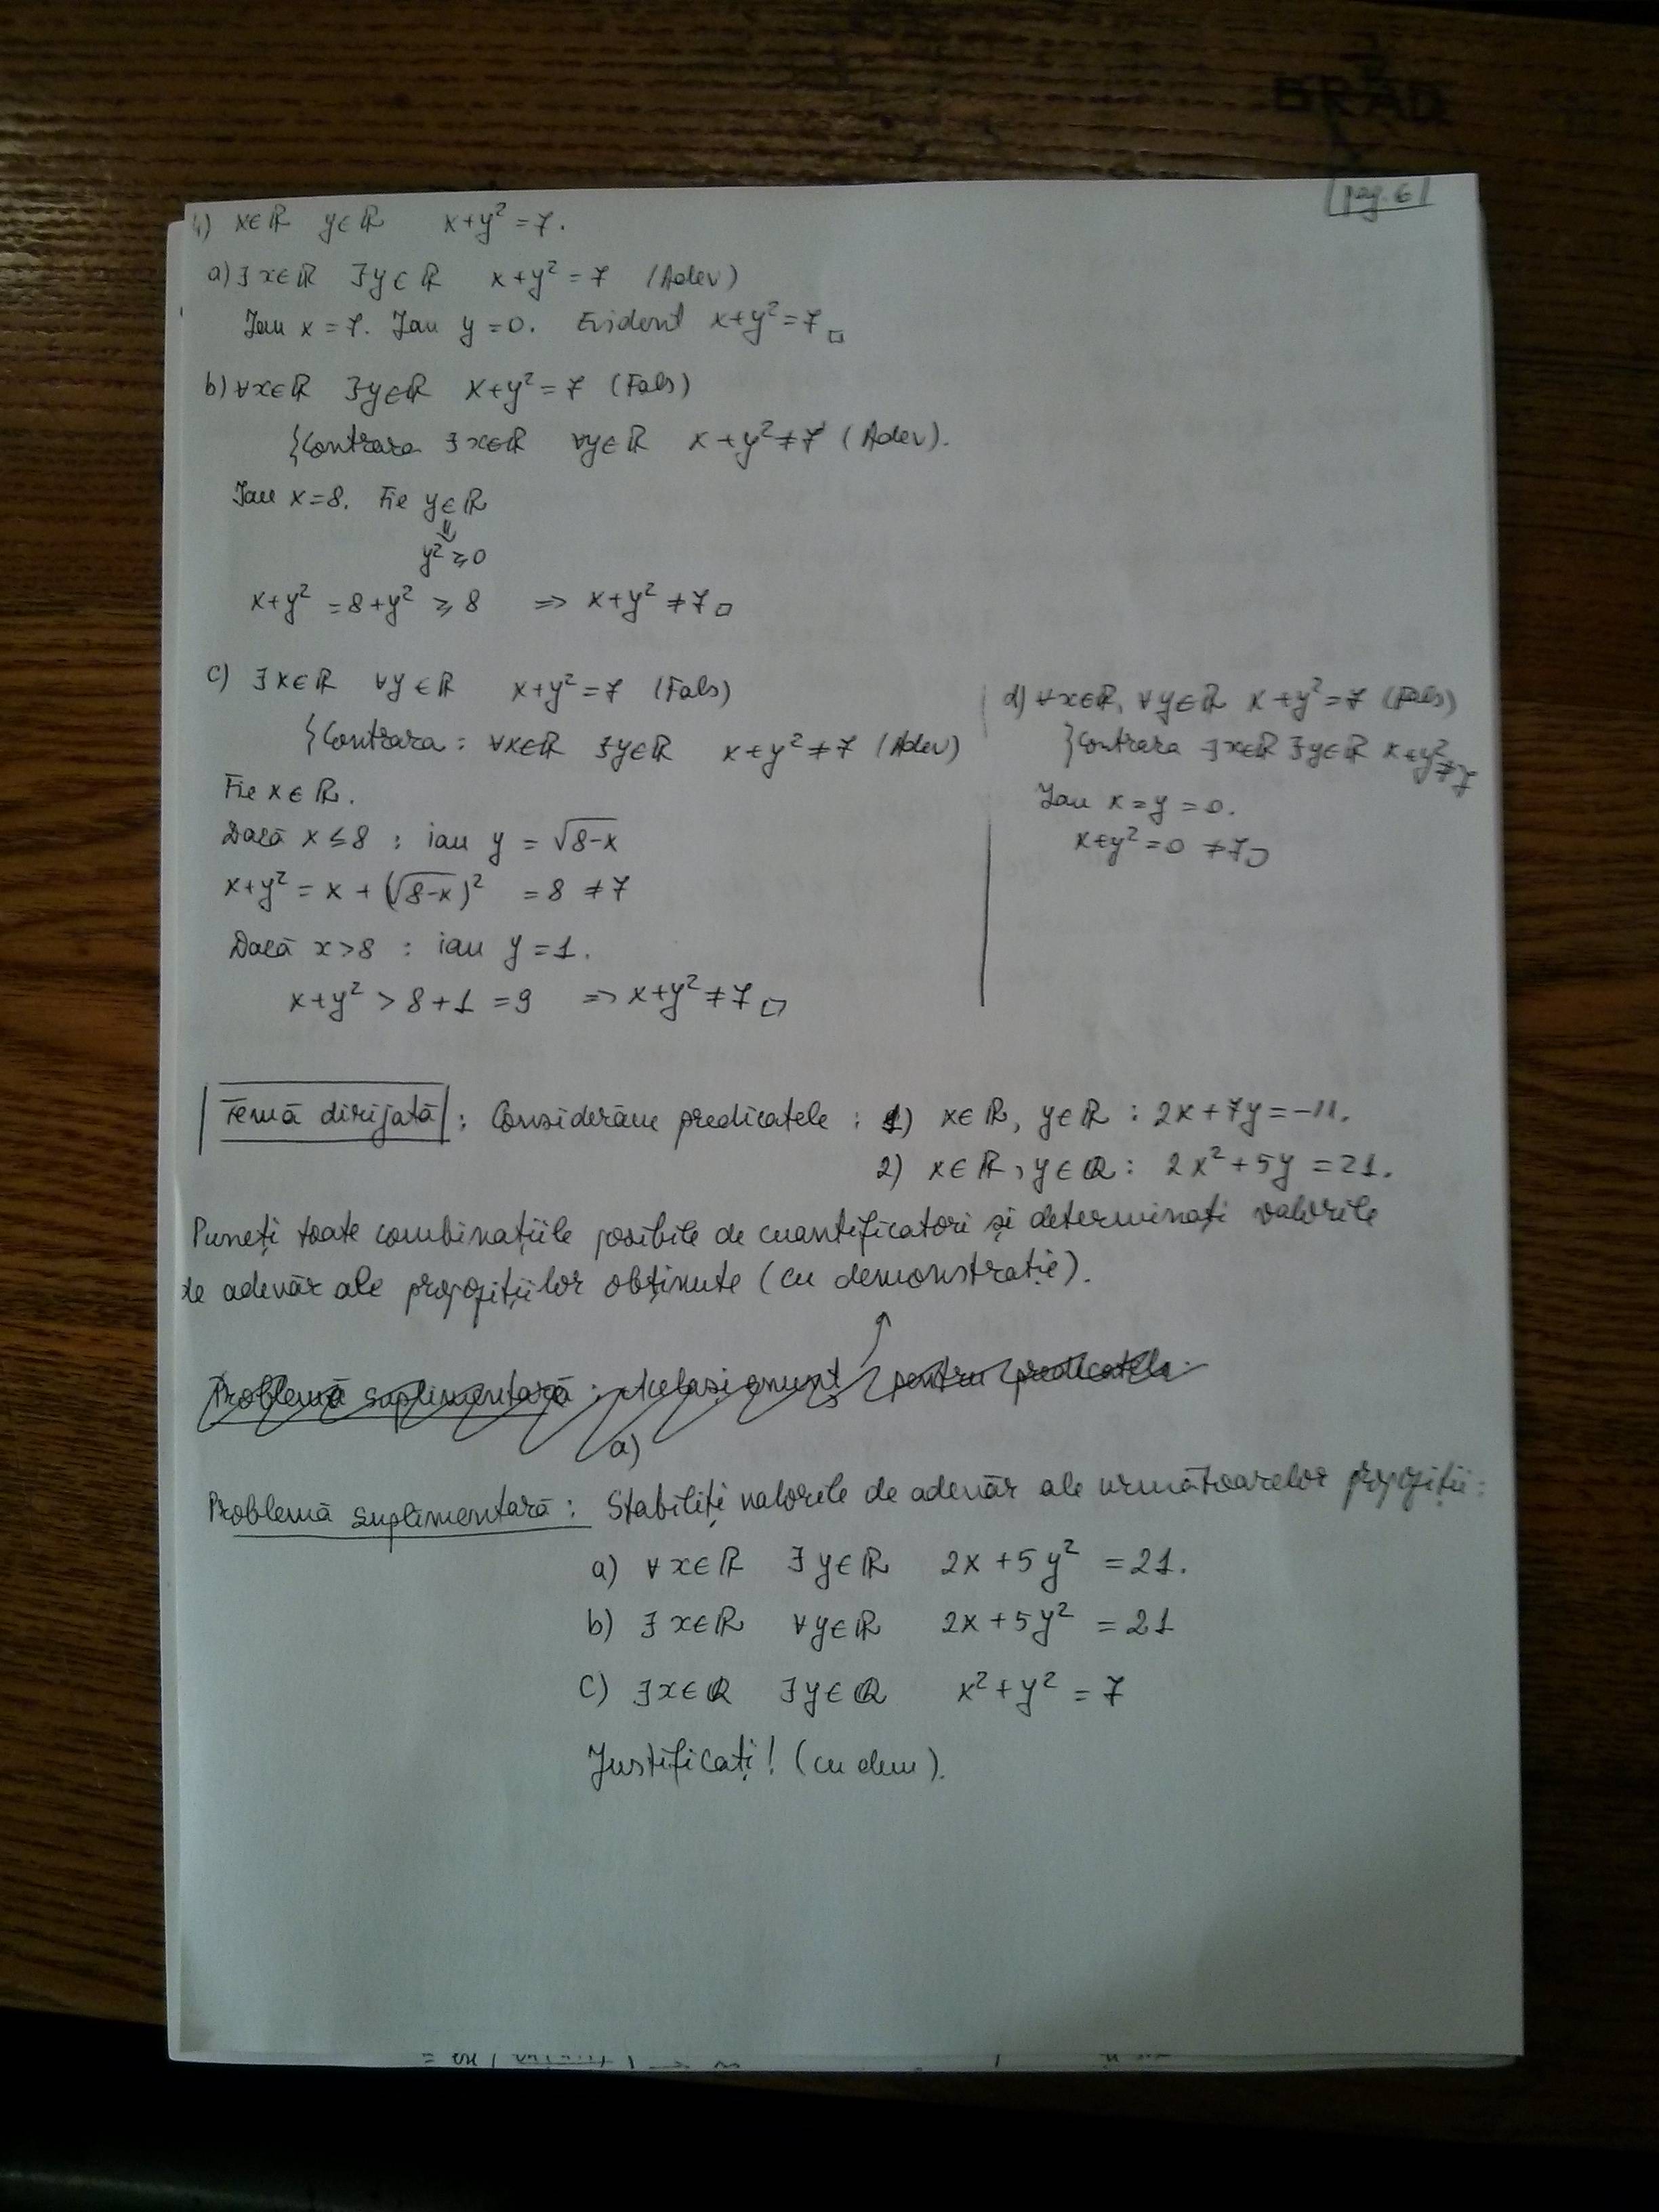 BRAD
pag. 6
4) x∈ℝ y∈ℝ x+y² = 7.
a) ∃x∈ℝ ∃y∈ℝ x+y² = 7 (Adev)
Iau x = 7. Iau y = 0. Evident x+y² = 7 □
b) ∀x∈ℝ ∃y∈ℝ x+y² = 7 (Fals)
{Contrara ∃x∈ℝ ∀y∈ℝ x+y² ≠ 7 (Adev).
Iau x=8. Fie y∈ℝ
⇓
y² ≥ 0
x+y² = 8+y² ≥ 8 => x+y² ≠ 7 □
c) ∃x∈ℝ ∀y∈ℝ x+y² = 7 (Fals)
{Contrara : ∀x∈ℝ ∃y∈ℝ x+y² ≠ 7 (Adev)
Fie x∈ℝ.
Dacă x ≤ 8 : iau y = √(8-x)
x+y² = x + (√(8-x))² = 8 ≠ 7
Dacă x>8 : iau y = 1.
x+y² > 8+1 = 9 => x+y² ≠ 7 □
d) ∀x∈ℝ, ∀y∈ℝ x+y² = 7 (Fals)
}Contrara ∃x∈ℝ ∃y∈ℝ x+y² ≠ 7
Iau x = y = 0.
x+y² = 0 ≠ 7 □
Temă dirijată : Considerăm predicatele : 1) x∈ℝ, y∈ℝ : 2x+7y = -11.
2) x∈ℝ, y∈ℚ : 2x²+5y = 21.
Puneți toate combinațiile posibile de cuantificatori și determinați valorile
de adevăr ale propozițiilor obținute (cu demonstrație).
Problemă suplimentară : Același enunț pentru predicatele
a)
Problemă suplimentară : Stabiliți valorile de adevăr ale următoarelor propoziții :
a) ∀x∈ℝ ∃y∈ℝ 2x+5y² = 21.
b) ∃x∈ℝ ∀y∈ℝ 2x+5y² = 21
c) ∃x∈ℚ ∃y∈ℚ x²+y² = 7
Justificați! (cu dem).